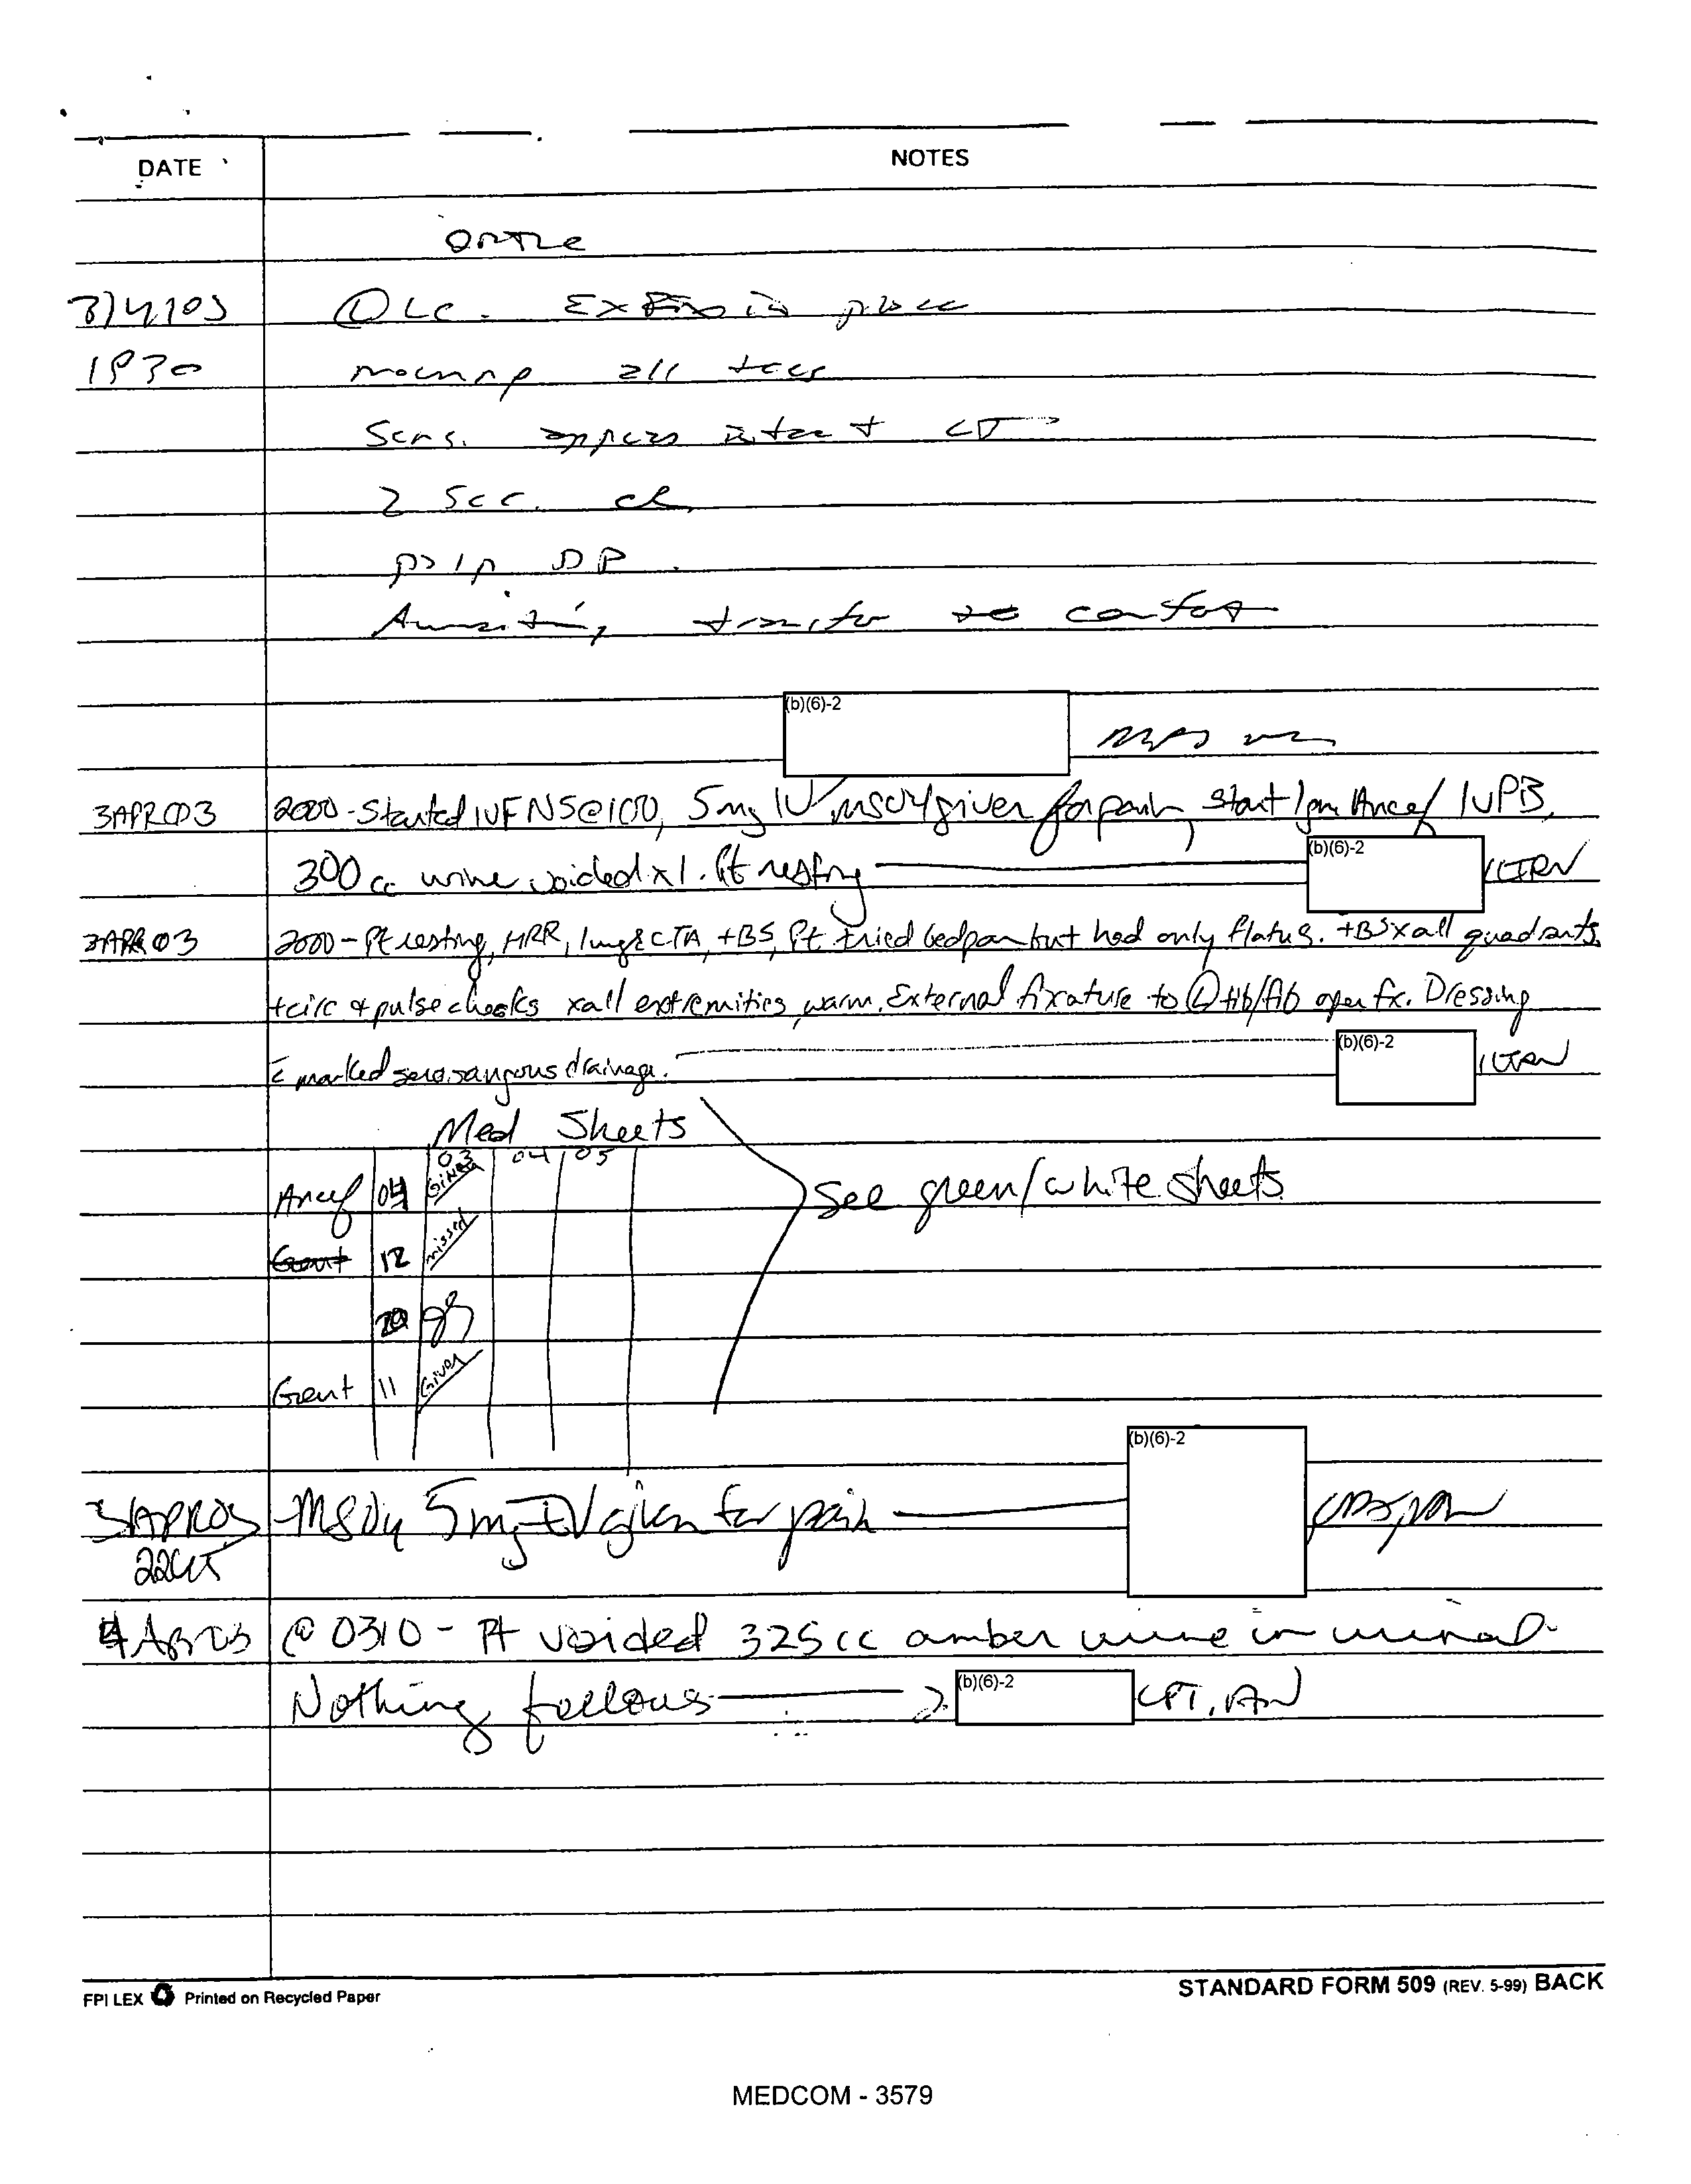 DATE NOTES
Ortho
3/4/03 Ⓛ LE. Ex Fix in place
1930 moving all toes
Sens. appears intact LT
2 sec. CR
palp DP.
Awaiting transfer to
(b)(6)-2
3APR03 2000 - Started IVF NS@100, 5mg IV MSO4 given for pain, start 1gm Ancef IVPB,
300 cc urine voided x1. Pt resting (b)(6)-2 1LTRN
3APR03 2000 - Pt resting, HRR, lungs CTA, +BS, Pt tried bedpan but had only flatus. +BS x all quadrants,
+circ & pulse checks x all extremities, warm. External fixature to Ⓛ tib/fib open fx. Dressing
c̄ marked serosangous drainage. (b)(6)-2 1LTRN
Med Sheets
03 04 05
Ancef 04 Given See green/white sheets
Gent 12 missed
20
Gent 11 Given
(b)(6)-2
3APR03 MSO4 5mg IV given for pain
2245
4Apr03 @ 0310 - Pt voided 325cc amber urine in urinal.
Nothing follows (b)(6)-2 CPT, AN
FPI LEX Printed on Recycled Paper STANDARD FORM 509 (REV. 5-99) BACK
MEDCOM - 3579